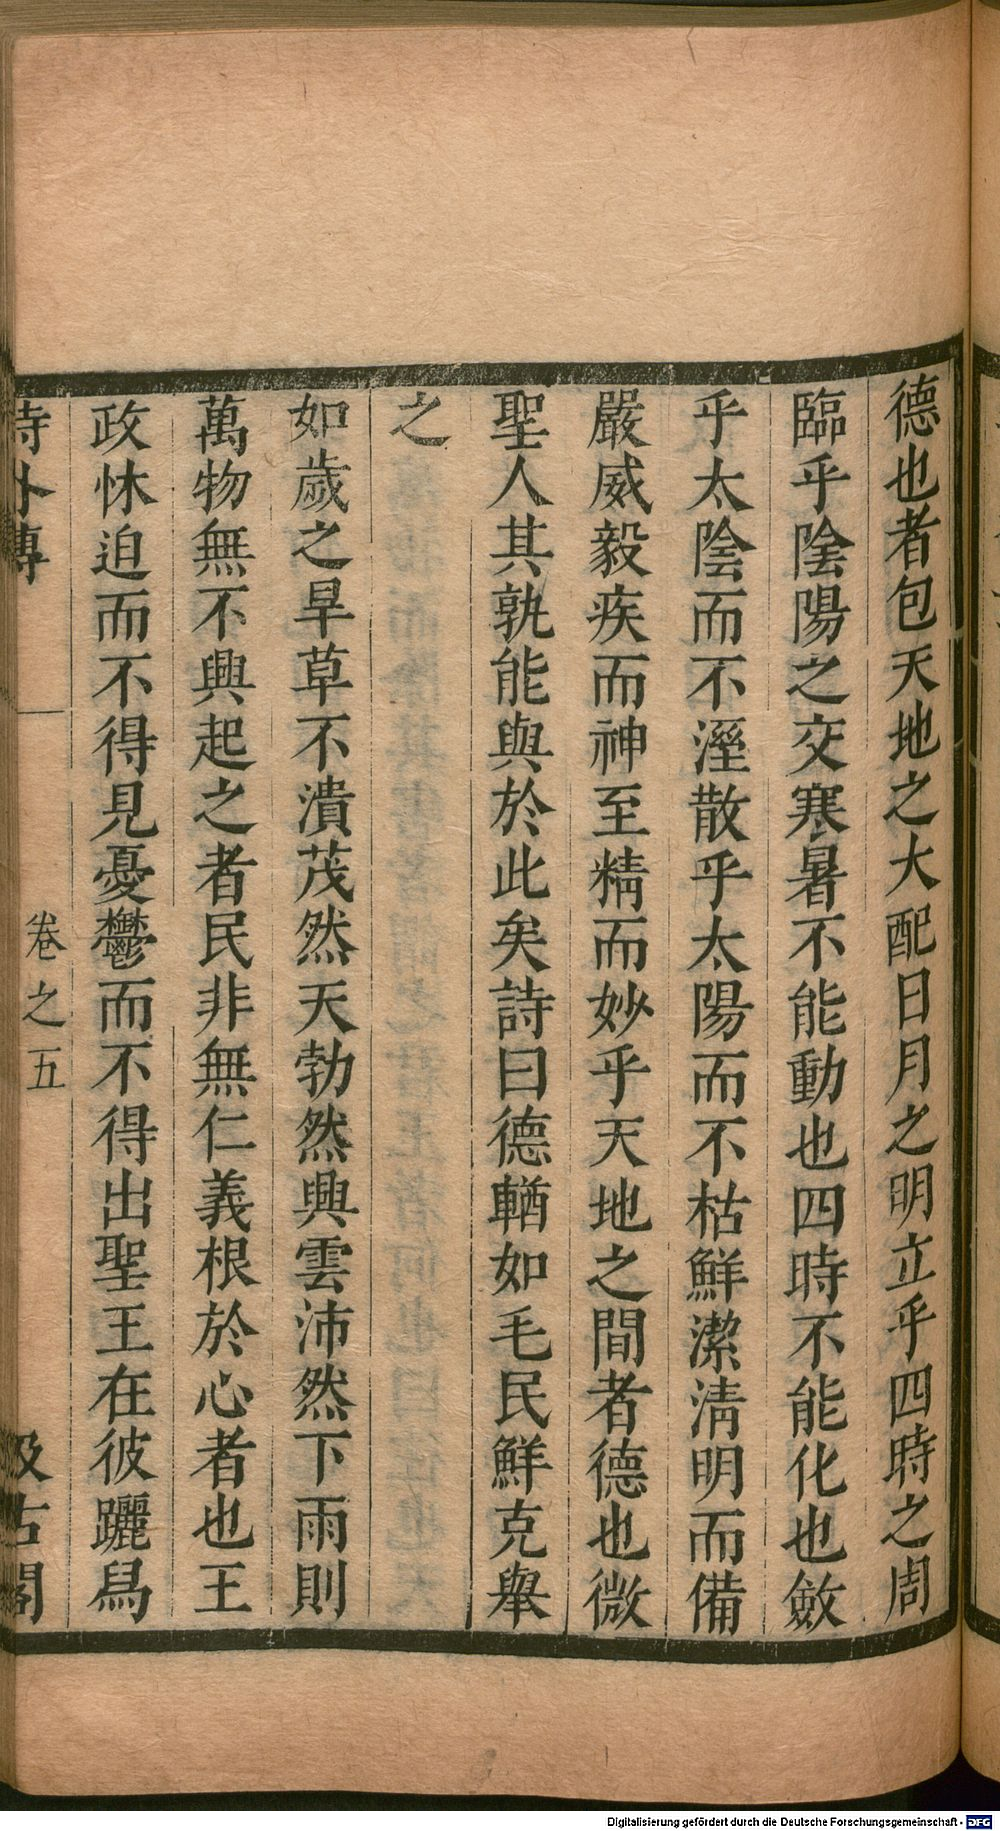 德也者包天地之大配日月之明立乎四時之周
臨乎陰陽之交寒暑不能動也四時不能化也斂
乎太陰而不溼散乎太陽而不枯鮮潔淸明而備
嚴威毅疾而神至精而妙乎天地之間者德也微
聖人其孰能與於此矣詩曰德輶如毛民鮮克舉
之
如歲之旱草不潰茂然天勃然興雲沛然下雨則
萬物無不興起之者民非無仁義根於心者也王
政怵迫而不得見憂鬱而不得出聖王在彼躧舄
詩外傳 卷之五 汲古閣
Digitalisierung gefördert durch die Deutsche Forschungsgemeinschaft - DFG